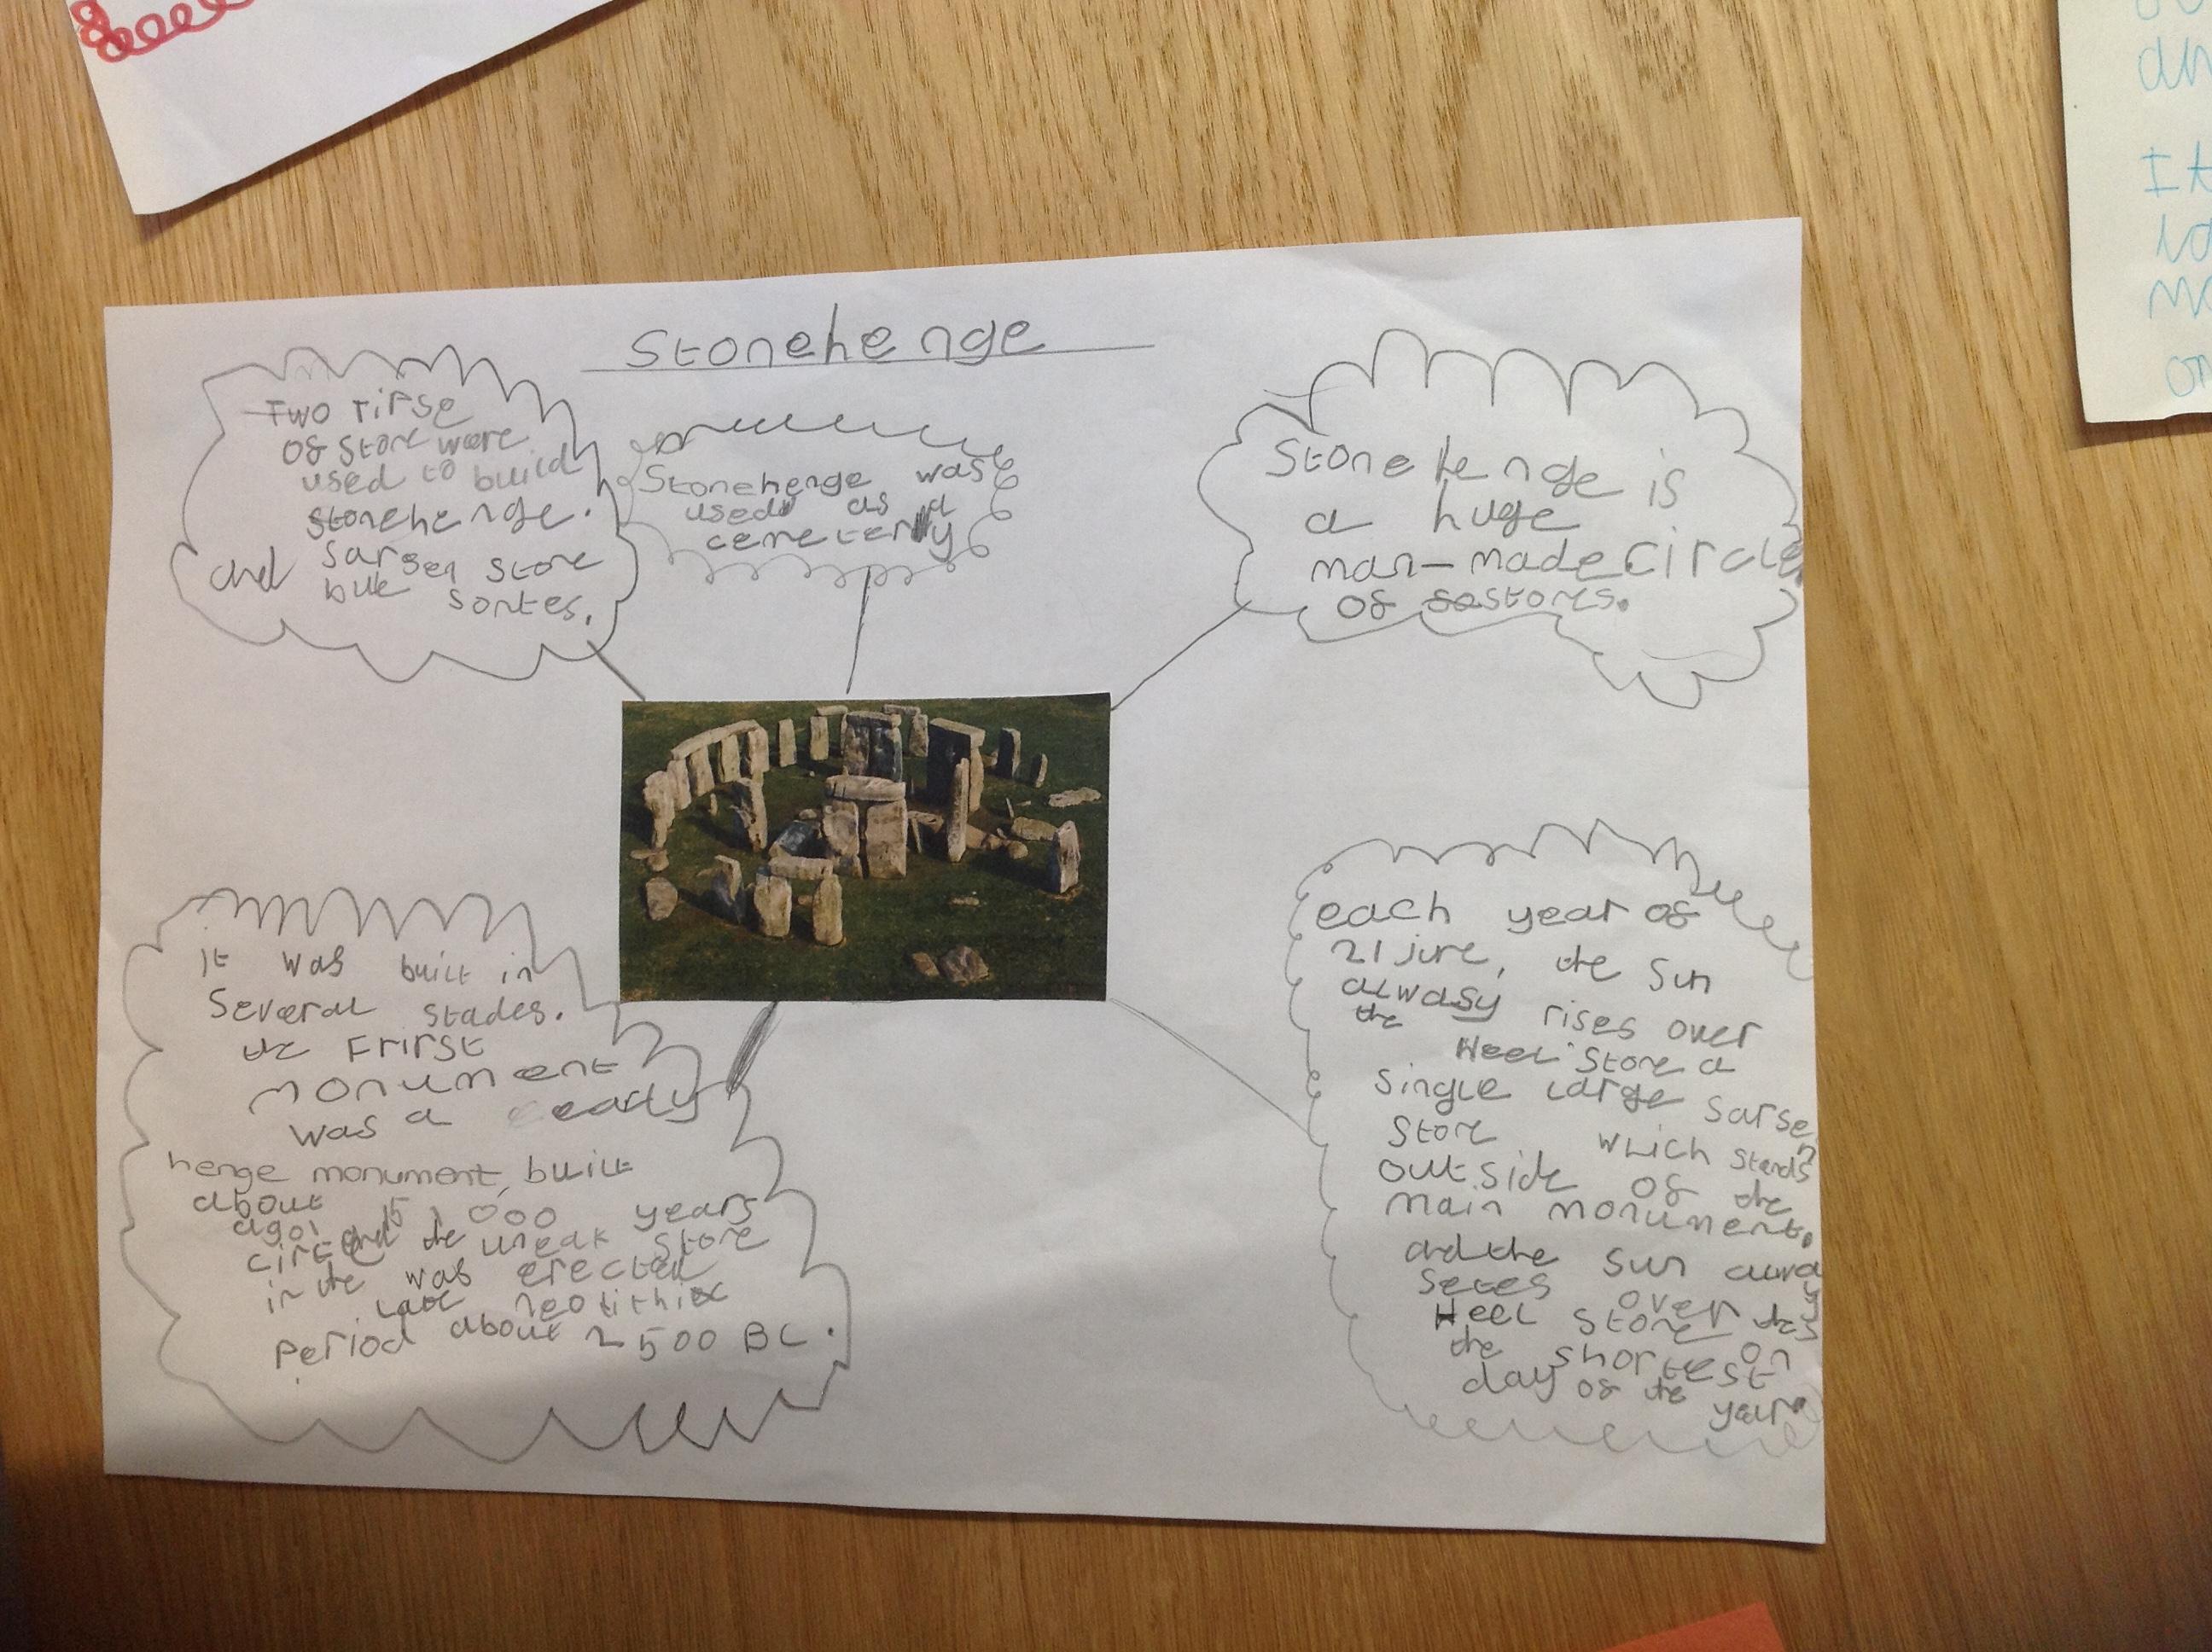 Stonehenge
Two
of stone were
used to build
stonehenge.
and sarsen stone
sontes.
Stonehenge was
used as a
cemetery
Stonehenge is
a huge
man-made circle
of stones.
it was built in
several stades.
the Frirst
monument
was a early
henge monument, built
about 5,000 years
ago, and the uneak stone
circle was erected
in the late neolithic
period about 2500 BC.
each year of
21 june, the sun
alwasy rises over
the Heel stone a
single large sarsen
stone which stands
outside of the
main monument.
and the sun always
setes over the
Heel stone on
the shortest
day of the year.
It